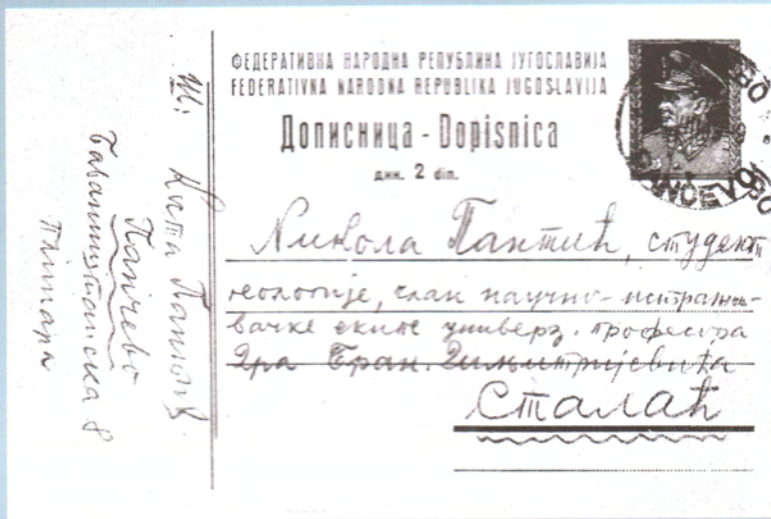 ФЕДЕРАТИВНА НАРОДНА РЕПУБЛИКА ЈУГОСЛАВИЈА
FEDERATIVNA NARODNA REPUBLIKA JUGOSLAVIJA
Дописница - Dopisnica
дин. 2 din.
Никола Пантић, студент
геологије, члан научно-истражи-
вачке екипе универз. професора
Дра Бран. Димитријевића
Сталаћ
Ш:
Пантић
Панчево
Баваништанска 8